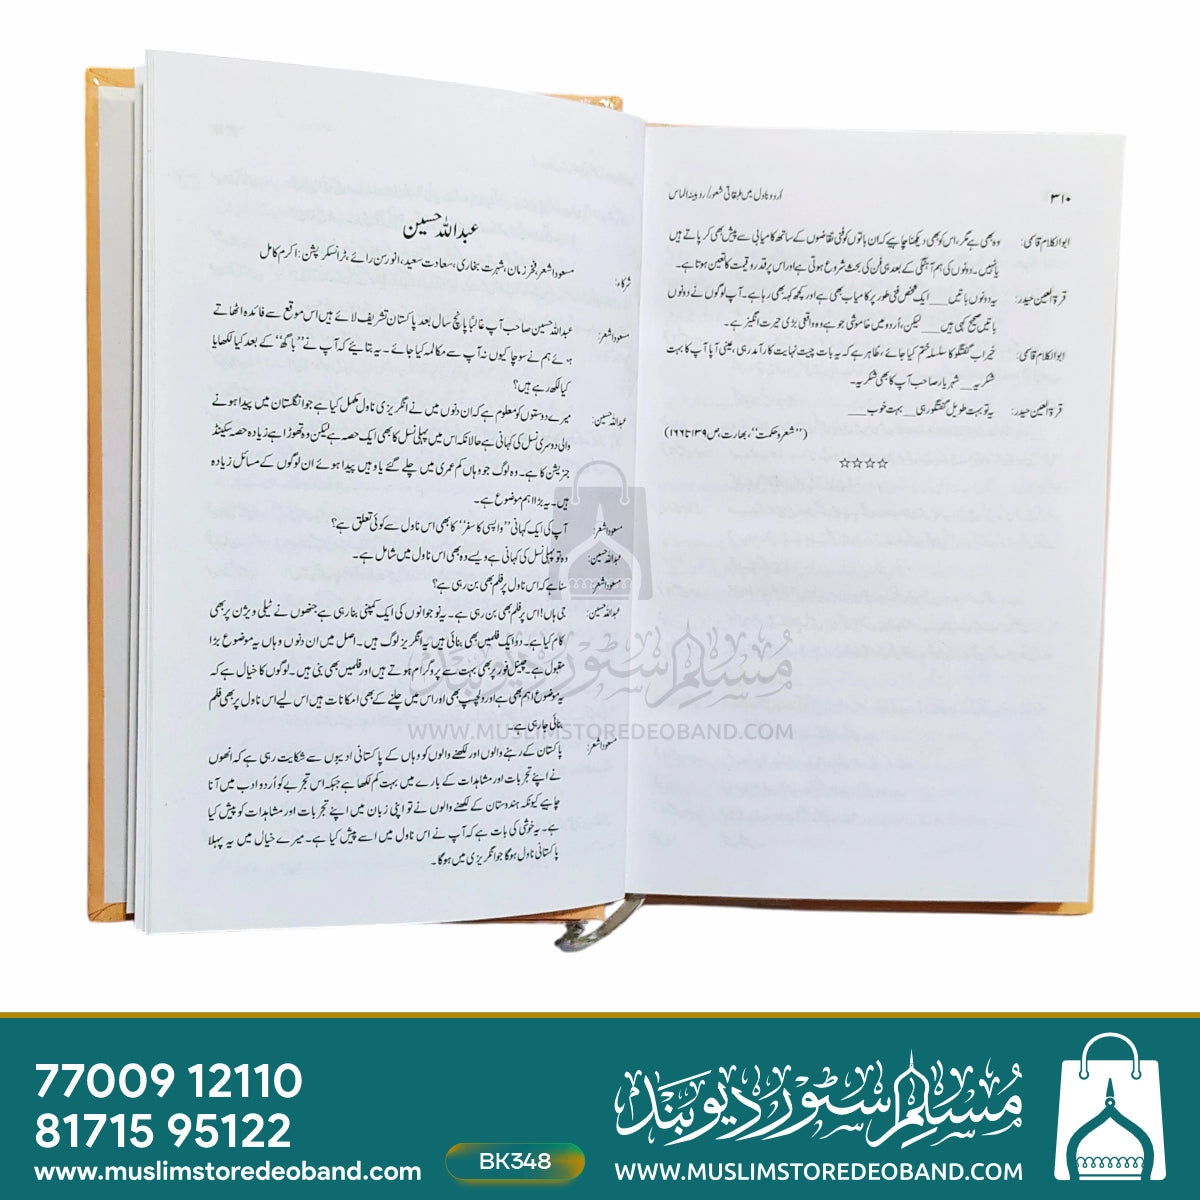 ۳۱۰
اُردو ناول میں طبقاتی شعور/روبینہ الماس
ابوالکلام قاسمی: وہ بھی ہے مگر، اس کو بھی دیکھنا چاہیے کہ ان باتوں کو فنی تقاضوں کے ساتھ کامیابی سے پیش بھی کر پاتے ہیں
یا نہیں۔ دونوں کی ہم آہنگی کے بعد ہی فن کی بحث شروع ہوتی ہے اور اس پر قدر و قیمت کا تعین ہوتا ہے۔
قرۃ العین حیدر: یہ دونوں باتیں___ ایک شخص فنی طور پر کامیاب بھی ہے اور کچھ کہہ بھی رہا ہے۔ آپ لوگوں نے دونوں
باتیں صحیح کہی ہیں___ لیکن، اُردو میں خاموشی جو ہے وہ واقعی بڑی حیرت انگیز ہے۔
ابوالکلام قاسمی: خیر اب گفتگو کا سلسلہ ختم کیا جائے، ظاہر ہے کہ یہ بات چیت نہایت کارآمد رہی، عینی آپا آپ کا بہت
شکریہ___ شہریار صاحب آپ کا بھی شکریہ۔
قرۃ العین حیدر: یہ تو بہت طویل گفتگو رہی___ بہت خوب___
(”شعر و حکمت“، بھارت، ص ۱۳۹ تا ۱۶۶)
☆☆☆☆
عبداللہ حسین
شرکاء: مسعود اشعر، فخر زمان، شہرت بخاری، سعادت سعید، انور سن رائے، ٹرانسکرپشن: اکرم کامل
مسعود اشعر: عبداللہ حسین صاحب آپ غالباً پانچ سال بعد پاکستان تشریف لائے ہیں اس موقع سے فائدہ اٹھاتے
ہوئے ہم نے سوچا کیوں نہ آپ سے مکالمہ کیا جائے۔ یہ بتائیے کہ آپ نے ”باگھ“ کے بعد کیا لکھا یا
کیا لکھ رہے ہیں؟
عبداللہ حسین: میرے دوستوں کو معلوم ہے کہ ان دنوں میں نے انگریزی ناول مکمل کیا ہے جو انگلستان میں پیدا ہونے
والی دوسری نسل کی کہانی ہے حالانکہ اس میں پہلی نسل کا بھی ایک حصہ ہے لیکن وہ تھوڑا ہے زیادہ حصہ سیکنڈ
جنریشن کا ہے۔ وہ لوگ جو وہاں کم عمری میں چلے گئے یا وہیں پیدا ہوئے ان لوگوں کے مسائل زیادہ
ہیں۔ یہ بڑا اہم موضوع ہے۔
مسعود اشعر: آپ کی ایک کہانی ”واپسی کا سفر“ کا بھی اس ناول سے کوئی تعلق ہے؟
عبداللہ حسین: وہ تو پہلی نسل کی کہانی ہے ویسے وہ بھی اس ناول میں شامل ہے۔
مسعود اشعر: سنا ہے کہ اس ناول پر فلم بھی بن رہی ہے؟
عبداللہ حسین: جی ہاں! اس پر فلم بھی بن رہی ہے۔ یہ نوجوانوں کی ایک کمپنی بنا رہی ہے جنھوں نے ٹیلی ویژن پر بھی
کام کیا ہے۔ دو ایک فلمیں بھی بنائی ہیں یہ انگریز لوگ ہیں۔ اصل میں ان دنوں وہاں یہ موضوع بڑا
مقبول ہے۔ چینل فور پر بھی بہت سے پروگرام ہوتے ہیں اور فلمیں بھی بنی ہیں۔ لوگوں کا خیال ہے کہ
یہ موضوع اہم بھی ہے اور دلچسپ بھی اور اس میں چلنے کے بھی امکانات ہیں اس لیے اس ناول پر بھی فلم
بنائی جا رہی ہے۔
مسعود اشعر: پاکستان کے رہنے والوں اور لکھنے والوں کو وہاں کے پاکستانی ادیبوں سے شکایت رہی ہے کہ انھوں
نے اپنے تجربات اور مشاہدات کے بارے میں بہت کم لکھا ہے جبکہ اس تجربے کو اُردو ادب میں آنا
چاہیے کیونکہ ہندوستان کے لکھنے والوں نے تو اپنی زبان میں اپنے تجربات اور مشاہدات کو پیش کیا
ہے۔ یہ خوشی کی بات ہے کہ آپ نے اس ناول میں اسے پیش کیا ہے۔ میرے خیال میں یہ پہلا
پاکستانی ناول ہوگا جو انگریزی میں ہوگا۔
مسلم سٹور دیوبند
WWW.MUSLIMSTOREDEOBAND.COM
77009 12110
81715 95122
www.muslimstoredeoband.com
BK348
مسلم سٹور دیوبند
WWW.MUSLIMSTOREDEOBAND.COM